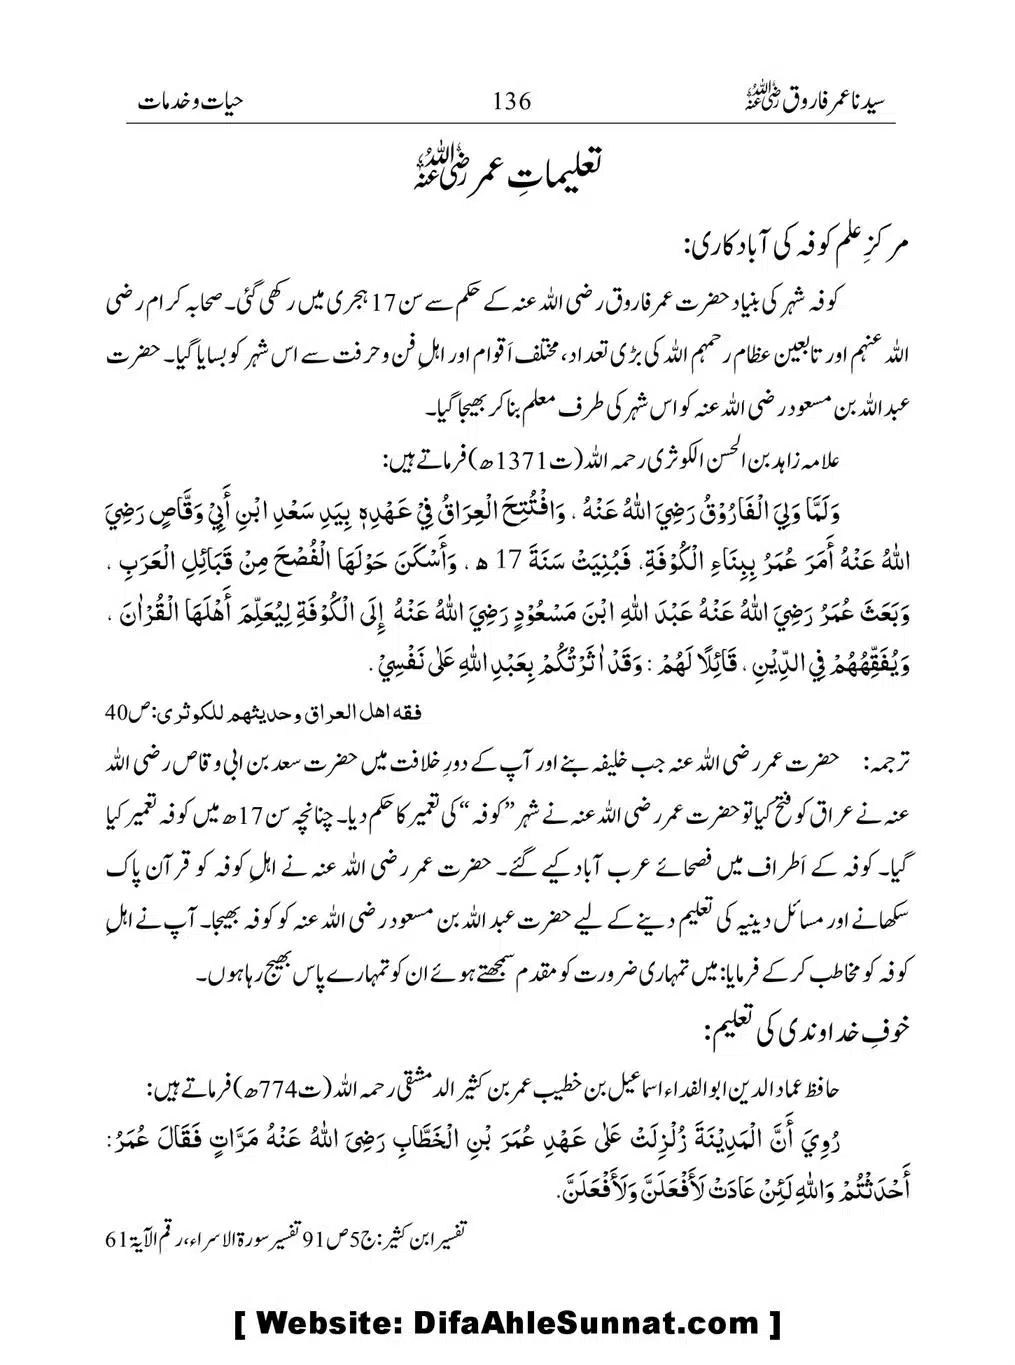 سیدنا عمر فاروق رضی اللہ عنہ 136 حیات و خدمات
تعلیماتِ عمر رضی اللہ عنہ
مرکزِ علم کوفہ کی آباد کاری:
کوفہ شہر کی بنیاد حضرت عمر فاروق رضی اللہ عنہ کے حکم سے سن 17 ہجری میں رکھی گئی۔ صحابہ کرام رضی
اللہ عنہم اور تابعین عظام رحمہم اللہ کی بڑی تعداد، مختلف اَقوام اور اہلِ فن و حرفت سے اس شہر کو بسایا گیا۔ حضرت
عبد اللہ بن مسعود رضی اللہ عنہ کو اس شہر کی طرف معلم بنا کر بھیجا گیا۔
علامہ زاہد بن الحسن الکوثری رحمہ اللہ (ت1371ھ) فرماتے ہیں:
وَلَمَّا وَلِيَ الْفَارُوْقُ رَضِيَ اللهُ عَنْهُ ، وَافْتُتِحَ الْعِرَاقُ فِيْ عَهْدِهٖ بِيَدِ سَعْدِ ابْنِ أَبِيْ وَقَّاصٍ رَضِيَ
اللهُ عَنْهُ أَمَرَ عُمَرُ بِبِنَاءِ الْكُوْفَةِ، فَبُنِيَتْ سَنَةَ 17 ھ ، وَأَسْكَنَ حَوْلَهَا الْفُصْحَ مِنْ قَبَائِلِ الْعَرَبِ ،
وَبَعَثَ عُمَرُ رَضِيَ اللهُ عَنْهُ عَبْدَ اللهِ ابْنَ مَسْعُوْدٍ رَضِيَ اللهُ عَنْهُ إِلَى الْكُوْفَةِ لِيُعَلِّمَ أَهْلَهَا الْقُرْاٰنَ ،
وَيُفَقِّهُهُمْ فِي الدِّيْنِ ، قَائِلًا لَهُمْ : وَقَدْ اٰثَرْتُكُمْ بِعَبْدِ اللهِ عَلٰى نَفْسِيْ .
فقه اهل العراق وحديثهم للكوثرى:ص40
ترجمہ: حضرت عمر رضی اللہ عنہ جب خلیفہ بنے اور آپ کے دورِ خلافت میں حضرت سعد بن ابی وقاص رضی اللہ
عنہ نے عراق کو فتح کیا تو حضرت عمر رضی اللہ عنہ نے شہر ”کوفہ“ کی تعمیر کا حکم دیا۔ چنانچہ سن 17ھ میں کوفہ تعمیر کیا
گیا۔ کوفہ کے اَطراف میں فصحائے عرب آباد کیے گئے۔ حضرت عمر رضی اللہ عنہ نے اہلِ کوفہ کو قرآن پاک
سکھانے اور مسائل دینیہ کی تعلیم دینے کے لیے حضرت عبد اللہ بن مسعود رضی اللہ عنہ کو کوفہ بھیجا۔ آپ نے اہلِ
کوفہ کو مخاطب کر کے فرمایا: میں تمہاری ضرورت کو مقدم سمجھتے ہوئے ان کو تمہارے پاس بھیج رہا ہوں۔
خوفِ خداوندی کی تعلیم:
حافظ عماد الدین ابو الفداء اسماعیل بن خطیب عمر بن کثیر الدمشقی رحمہ اللہ (ت774ھ) فرماتے ہیں:
رُوِيَ أَنَّ الْمَدِيْنَةَ زُلْزِلَتْ عَلٰى عَهْدِ عُمَرَ بْنِ الْخَطَّابِ رَضِىَ اللهُ عَنْهُ مَرَّاتٍ فَقَالَ عُمَرُ :
أَحْدَثْتُمْ وَاللهِ لَئِنْ عَادَتْ لَأَفْعَلَنَّ وَلَأَفْعَلَنَّ.
تفسیر ابن کثیر: ج5 ص91 تفسیر سورۃ الاسراء، رقم الآیۃ 61
[ Website: DifaAhleSunnat.com ]